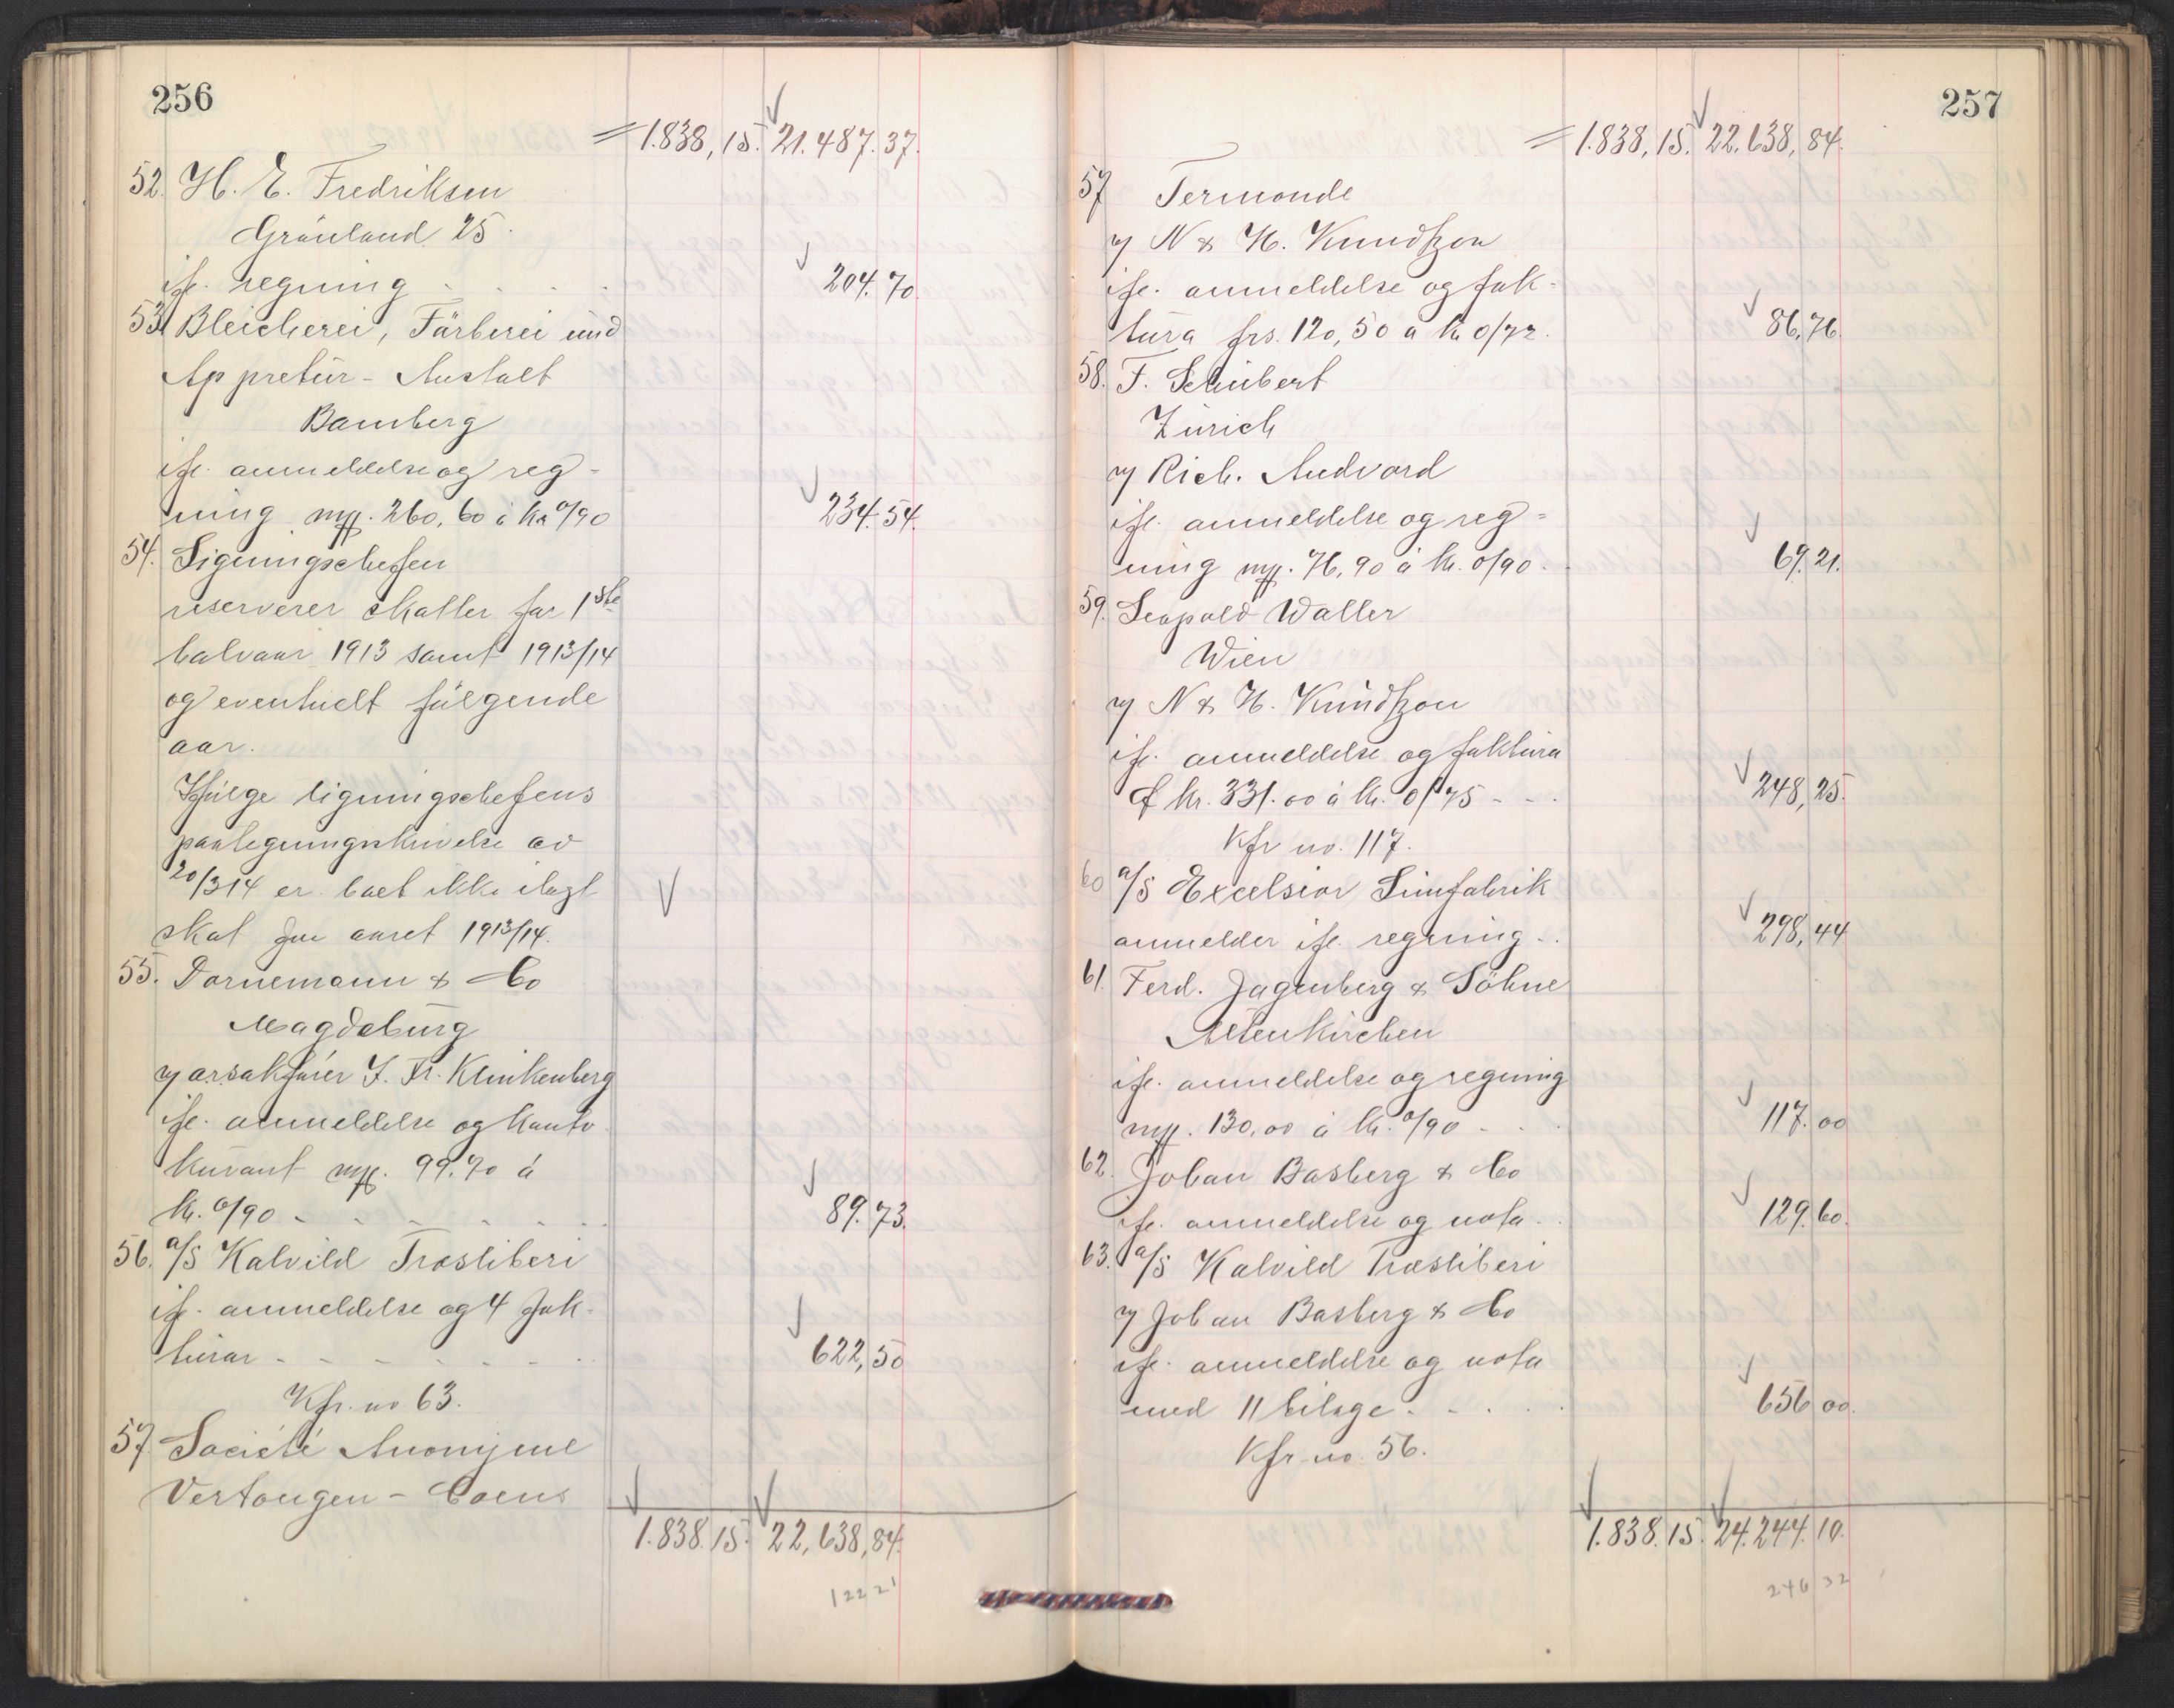 256
= 1.838,15. 21.487.37.
52. H. E. Fredriksen
Grönland 25.
ifl. regning - - - - 204.70.
53. Bleicherei, Färberei und
Appretur - Anstalt
Bamberg
ifl. anmeldelse og reg-
ning mk. 260,60 à kr 0/90 234.54.
54. Ligningschefen
reserverer skatter for 1ste
halvaar 1913 samt 1913/14
og eventuelt følgende
aar.
Ifølge ligningschefens
paalegningsskrivelse av
20/3 14 er boet ikke ilagt
skat for aaret 1913/14.
55. Dornemann & Co
Magdeburg
v/ o.r.sakfører J. Fr. Klinkenberg
ifl. anmeldelse og konto
kurant mk. 99.70 à
kr. 0/90 - - - - - - 89.73.
56. A/S Kalvild Træsliberi
ifl. anmeldelse og 4 fak-
turar - - - - - - - 622,50
Kfr. no 63.
57. Société Anonijme
Vertongen - Coens
1.838.15. 22,638,84.
122 21
257
= 1.838,15. 22.638,84.
57 Termonde
v/ N & H. Knudtzon
ifl. anmeldelse og fak-
tura frs. 120,50 à kr 0/72. 86,76.
58. F. Schubert
Zürich
v/ Rich. Andvord
ifl. anmeldelse og reg-
ning mk. 76,90 à kr. 0/90. 69.21.
59. Leopold Waller
Wien
v/ N & H. Knudtzon
ifl. anmeldelse og faktura
Ø kr. 331.00 à kr. 0/75 - - . 248,25.
Kfr no. 117.
60 A/S Excelsior Limfabrik
anmelder ifl. regning - . 298,44
61. Ferd. Jagenberg & Söhne
Altenkirchen
ifl. anmeldelse og regning
mk. 130,00 à kr. 0/90 - . . 117.00
62. Johan Basberg & Co
ifl. anmeldelse og nota . . 129.60.
63. A/S Kalvild Træsliberi
v/ Johan Basberg & Co
ifl. anmeldelse og nota
med 11 bilage . - . . . 656 00.
Kfr no. 56.
1.838.15. 24.244.10.
246 32